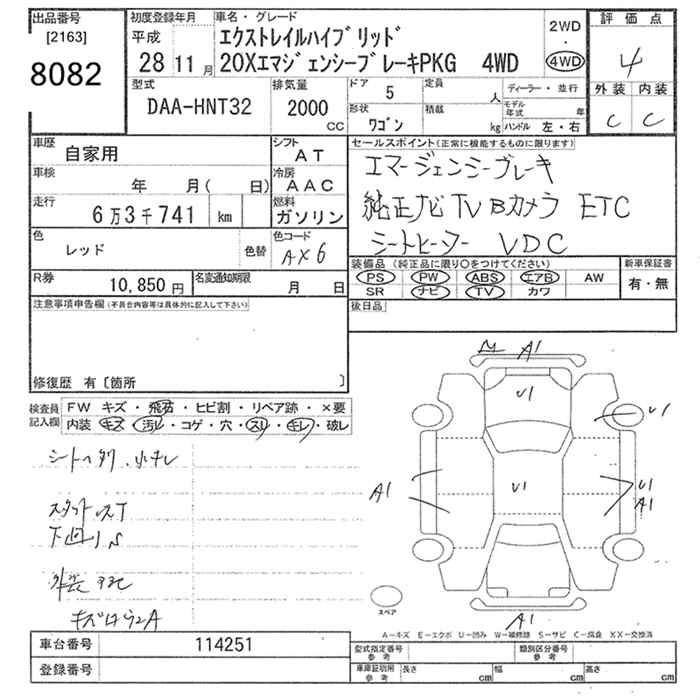 出品番号 初度登録年月 車名・グレード 評価点
[2163] 平成 エクストレイルハイブリッド 2WD
8082 28 11月 20XエマジェンシーブレーキPKG 4WD ・ 4WD 4
型式 排気量 ドア 5 定員 人 ディーラー・並行 外装 内装
DAA-HNT32 2000 CC 形状 ワゴン 積載 kg モデル年式 年 ハンドル 左・右 C C
車歴 自家用 シフト AT セールスポイント(正常に機能するものに限ります)
車検 年 月( 日) 冷房 AAC エマージェンシーブレーキ
走行 6万3千741 km 燃料 ガソリン 純正ナビ TV Bカメラ ETC
色 レッド 色替 色コード AX6 シートヒーター VDC
装備品(純正品に限り○をつけてください) 新車保証書
R券 10,850円 名変通知期限 月 日 PS PW ABS エアB AW 有・無
SR ナビ TV カワ
注意事項申告欄(不具合内容等は具体的に記入して下さい) 後日品
修復歴 有〔箇所 〕
検査員記入欄 FW キズ・飛石・ヒビ割・リペア跡・×要
内装 キズ・汚レ・コゲ・穴・スレ・キレ・破レ
A1
U1
U1
A1 U1 U1
A1
スペア
A1
A-キズ E-エクボ U-凹み W-補修跡 S-サビ C-腐食 XX-交換済
車台番号 114251 型式指定番号 参考 類別区分番号 参考
登録番号 車庫証明用 参考 長さ cm 幅 cm 高さ cm